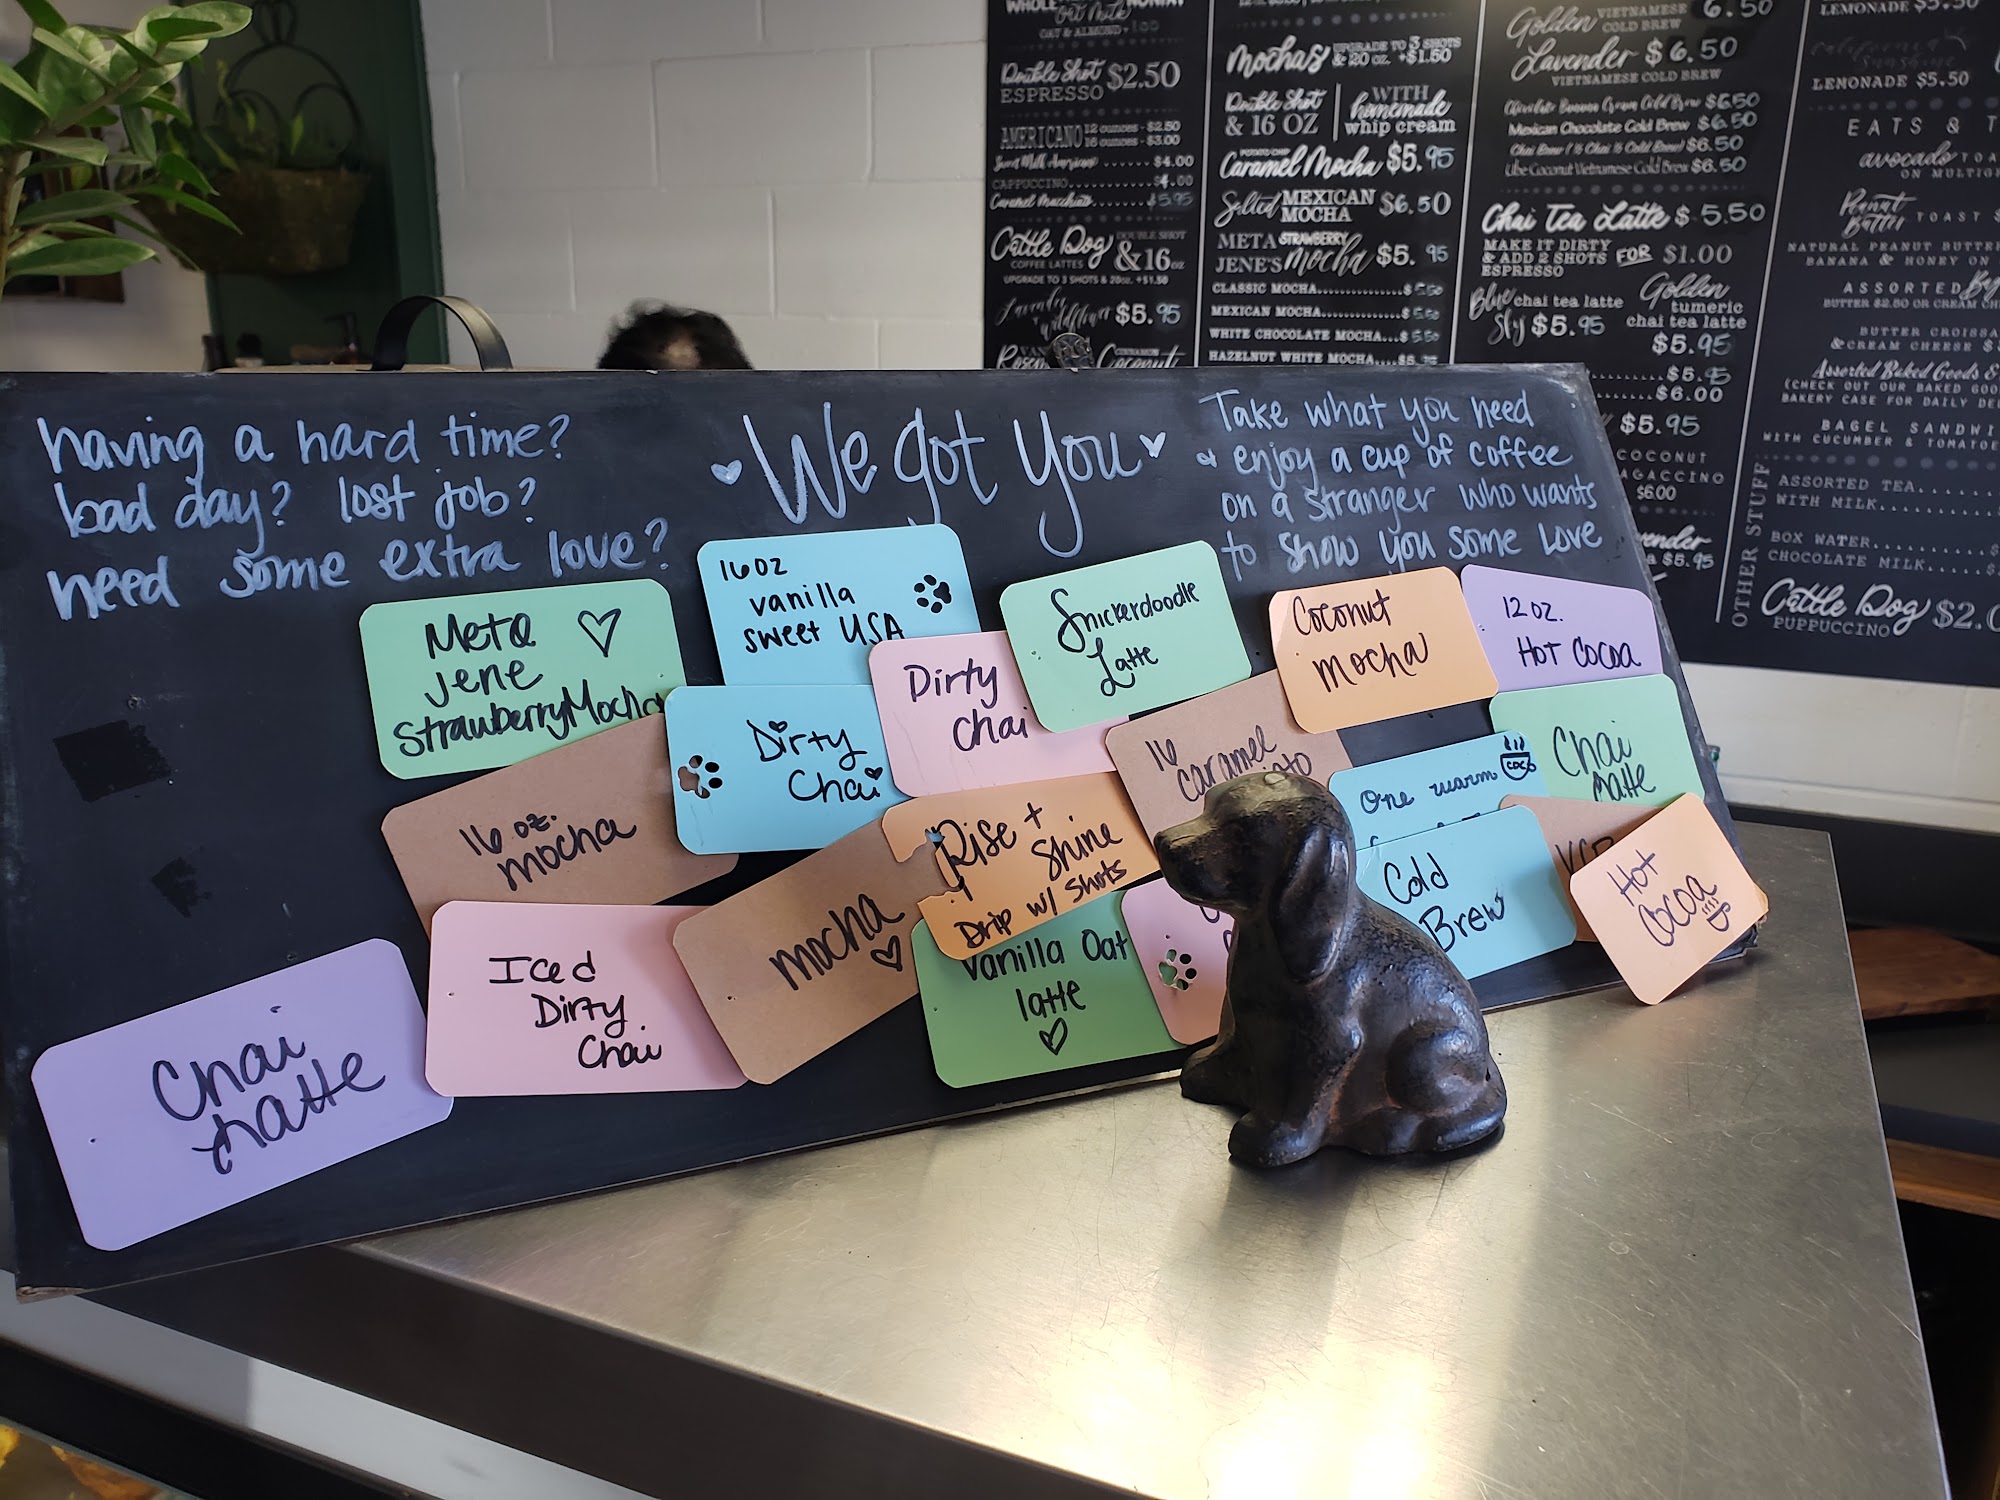 WHOLE
Oat Milk
OAT & ALMOND
Double Shot $2.50
ESPRESSO
AMERICANO 12 ounces - $2.50
16 ounces - $3.00
Sweet Milk Americano ...... $4.00
CAPPUCCINO........... $4.00
Caramel Macchiato ......... $5.95
Cattle Dog DOUBLE SHOT
COFFEE LATTES & 16 oz
UPGRADE TO 3 SHOTS & 20oz. +$1.50
Lavender wildflower $5.95
Coconut
Mochas UPGRADE TO 3 SHOTS
& 20 oz. +$1.50
Double Shot
& 16 OZ
WITH
homemade
whip cream
POTATO CHIP
Caramel Mocha $5.95
Salted MEXICAN
MOCHA $6.50
META STRAWBERRY
JENE'S Mocha $5.95
CLASSIC MOCHA............... $5.50
MEXICAN MOCHA............... $5.50
WHITE CHOCOLATE MOCHA... $5.50
HAZELNUT WHITE MOCHA...
Golden VIETNAMESE 6.50
COLD BREW
Lavender $6.50
VIETNAMESE COLD BREW
Chocolate Banana Cream Cold Brew $6.50
Mexican Chocolate Cold Brew $6.50
Chai Brew (½ Chai ½ Cold Brew) $6.50
Ube Coconut Vietnamese Cold Brew $6.50
Chai Tea Latte $5.50
MAKE IT DIRTY
& ADD 2 SHOTS FOR $1.00
ESPRESSO
Blue Sky chai tea latte
$5.95
Golden
tumeric
chai tea latte
$5.95
$5.95
$6.00
$5.95
COCONUT
$6.00
$5.95
LEMONADE $5.50
California
Sunshine
LEMONADE $5.50
EATS & T
avocado TOA
ON MULTIG
Peanut
Butter TOAST $
NATURAL PEANUT BUTTER
BANANA & HONEY ON
ASSORTED
BUTTER $2.50 OR CREAM CH
BUTTER CROISSA
& CREAM CHEESE $3
Assorted Baked Goods &
(CHECK OUT OUR BAKED GOO
BAKERY CASE FOR DAILY DE
BAGEL SANDWI
WITH CUCUMBER & TOMATOE
OTHER STUFF
ASSORTED TEA......
WITH MILK........
BOX WATER.........
CHOCOLATE MILK......
Cattle Dog $2.0
PUPPUCCINO
having a hard time?
bad day? lost job?
need some extra love?
We got you
Take what you need
& enjoy a cup of coffee
on a stranger who wants
to show you some love
Meta
Jene
Strawberry Mocha
16oz
vanilla
sweet USA
Dirty
Chai
Snickerdoodle
Latte
Coconut
Mocha
12 oz.
Hot Cocoa
16 oz.
mocha
Dirty
Chai
16
Caramel
One warm
CDC
Chai
Latte
Rise +
Shine
Drip w/ shots
Cold
Brew
Hot
Cocoa
Chai
Latte
Iced
Dirty
Chai
mocha
Vanilla Oat
latte